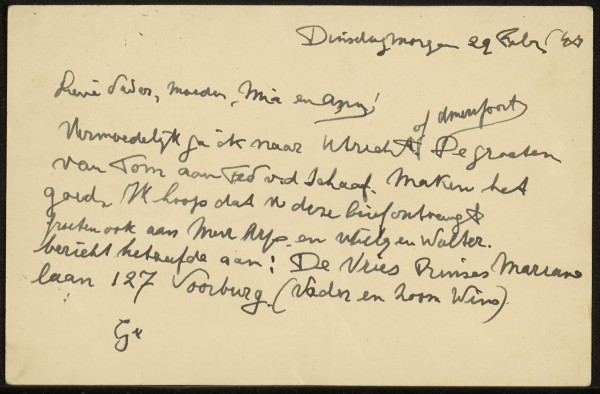 Dinsdagmorgen 29 Febr. '44
Lieve Vader, moeder, Mia en
of Amersfoort
Vermoedelijk ga ik naar Utrecht. De groeten
van Tom aan Ted v.d. Schaaf. Maken het
goed. Ik hoop dat U deze brief ontvangt
groeten ook aan Mevr Arp. en en Walter.
bericht hetzelfde aan: De Vries Prinses Mariane
laan 127 Voorburg. (Vader en zoon Wim)